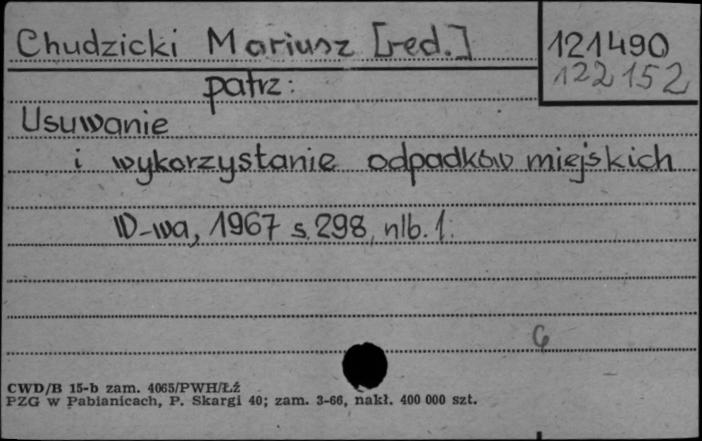 Chudzicki Mariusz [red.]
121490
122152
patrz:
Usuwanie
i wykorzystanie odpadków miejskich
W-wa, 1967 s. 298, nlb. 1.
6
CWD/B 15-b zam. 4065/PWH/Łź
PZG w Pabianicach, P. Skargi 40; zam. 3-66, nakł. 400 000 szt.